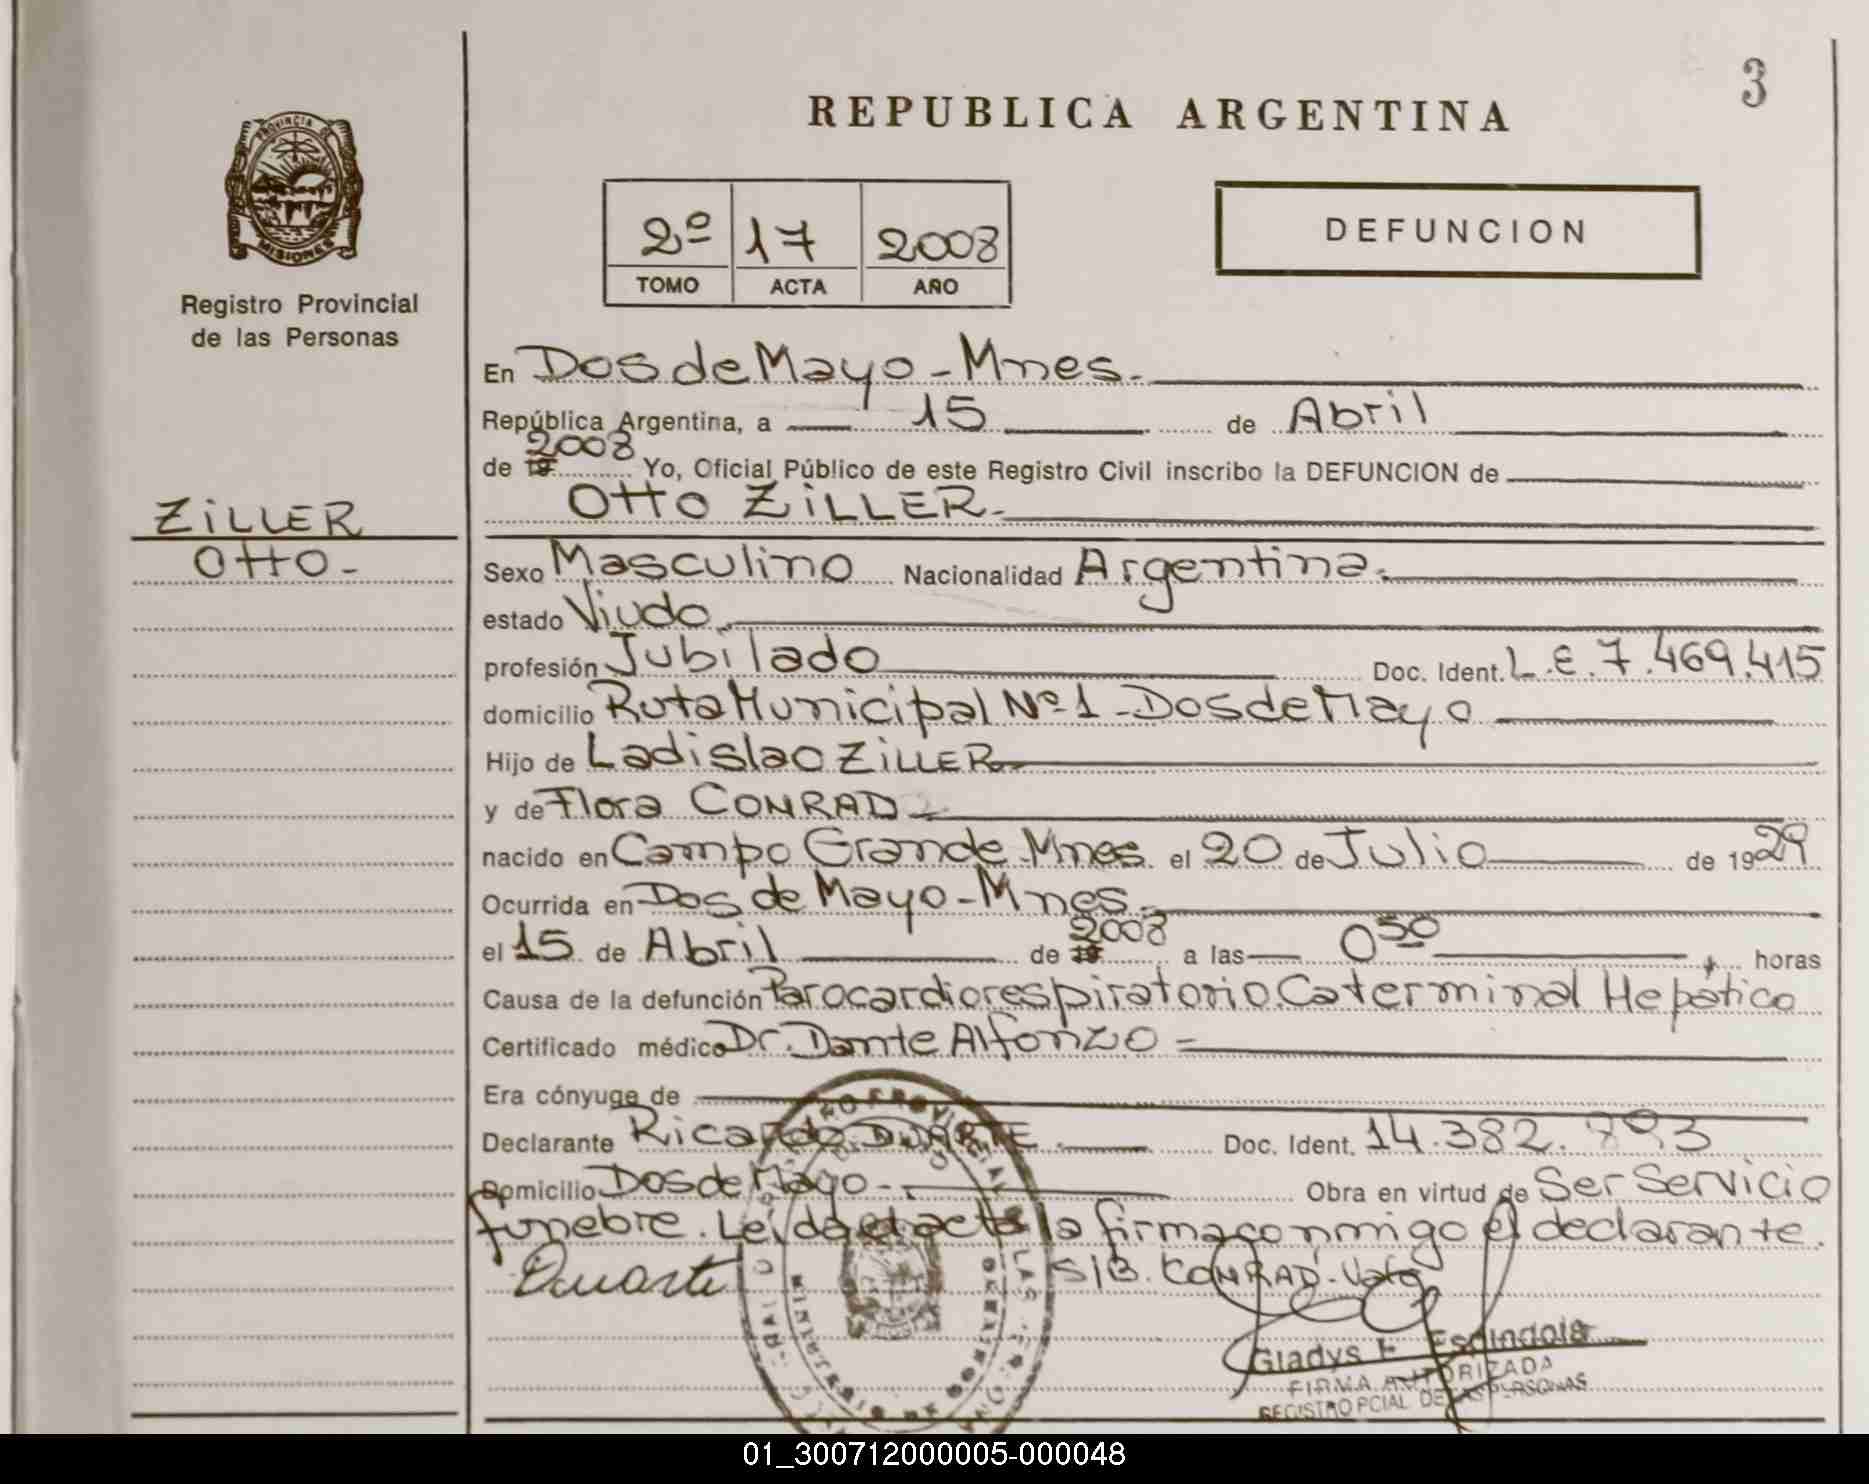 3
REPUBLICA ARGENTINA
PROVINCIA DE
MISIONES
Registro Provincial
de las Personas
2º 17 2008
TOMO ACTA AÑO
DEFUNCION
En Dos de Mayo - Mnes.
República Argentina, a 15 de Abril
2008
de 19 Yo, Oficial Público de este Registro Civil inscribo la DEFUNCION de
OTTO ZiLLER.
ZiLLER
OTTO -
Sexo Masculino Nacionalidad Argentina.
estado Viudo.
profesión Jubilado Doc. Ident. L.E. 7.469.415
domicilio Ruta Municipal Nº 1 - Dos de Mayo
Hijo de Ladislao ZiLLER
y de Flora CONRAD
nacido en Campo Grande Mnes. el 20 de Julio de 1929
Ocurrida en Dos de Mayo - Mnes.
2008
el 15 de Abril de 19 a las 0 50 horas
Causa de la defunción Parocardiorespiratorio. Ca terminal Hepático
Certificado médico Dr. Dante Alfonzo -
Era cónyuge de
Declarante Ricardo DUARTE. Doc. Ident. 14.382.793
Domicilio Dos de Mayo - Obra en virtud de Ser Servicio
funebre. Leida el acta la firma conmigo el declarante.
Duarte S/B. CONRAD. Vale
Gladys F. Espindola
FIRMA AUTORIZADA
REGISTRO PCIAL DE LAS PERSONAS
01_300712000005-000048